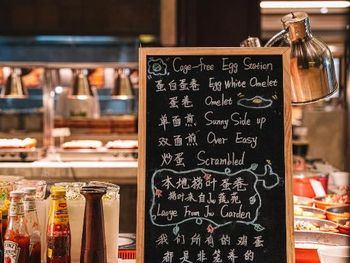 Cage-free Egg Station
蛋白蛋卷 Egg White Omelet
蛋卷 Omelet
单面煎 Sunny Side up
双面煎 Over Easy
炒蛋 Scrambled
本地农场蛋
Large From Jiu Garden
我们所有的鸡蛋
都是非笼